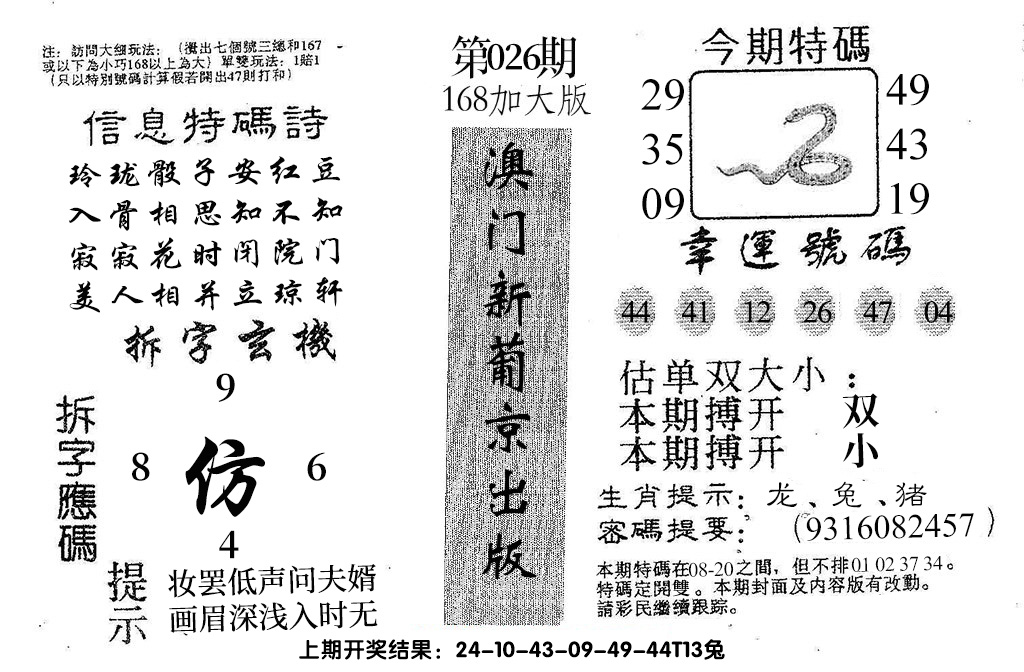 注：訪問大细玩法：（攪出七個號三總和167
或以下為小巧168以上為大）單雙玩法：1賠1
（只以特別號碼計算假若開出47則打和）
信息特碼詩
玲珑骰子安红豆
入骨相思知不知
寂寂花时闭院门
美人相并立琼轩
拆字玄機
拆字應碼
9
8 仿 6
4
提示
妆罢低声问夫婿
画眉深浅入时无
第026期
168加大版
澳门新葡京出版
今期特碼
29 49
35 43
09 19
幸運號碼
44 41 12 26 47 04
估单双大小：
本期搏开 双
本期搏开 小
生肖提示：龙、兔、猪
密碼提要：（9316082457）
本期特碼在08-20之間，但不排01 02 37 34。
特碼定開雙。本期封面及内容版有改動。
請彩民繼續跟踪。
上期开奖结果：24-10-43-09-49-44T13兔